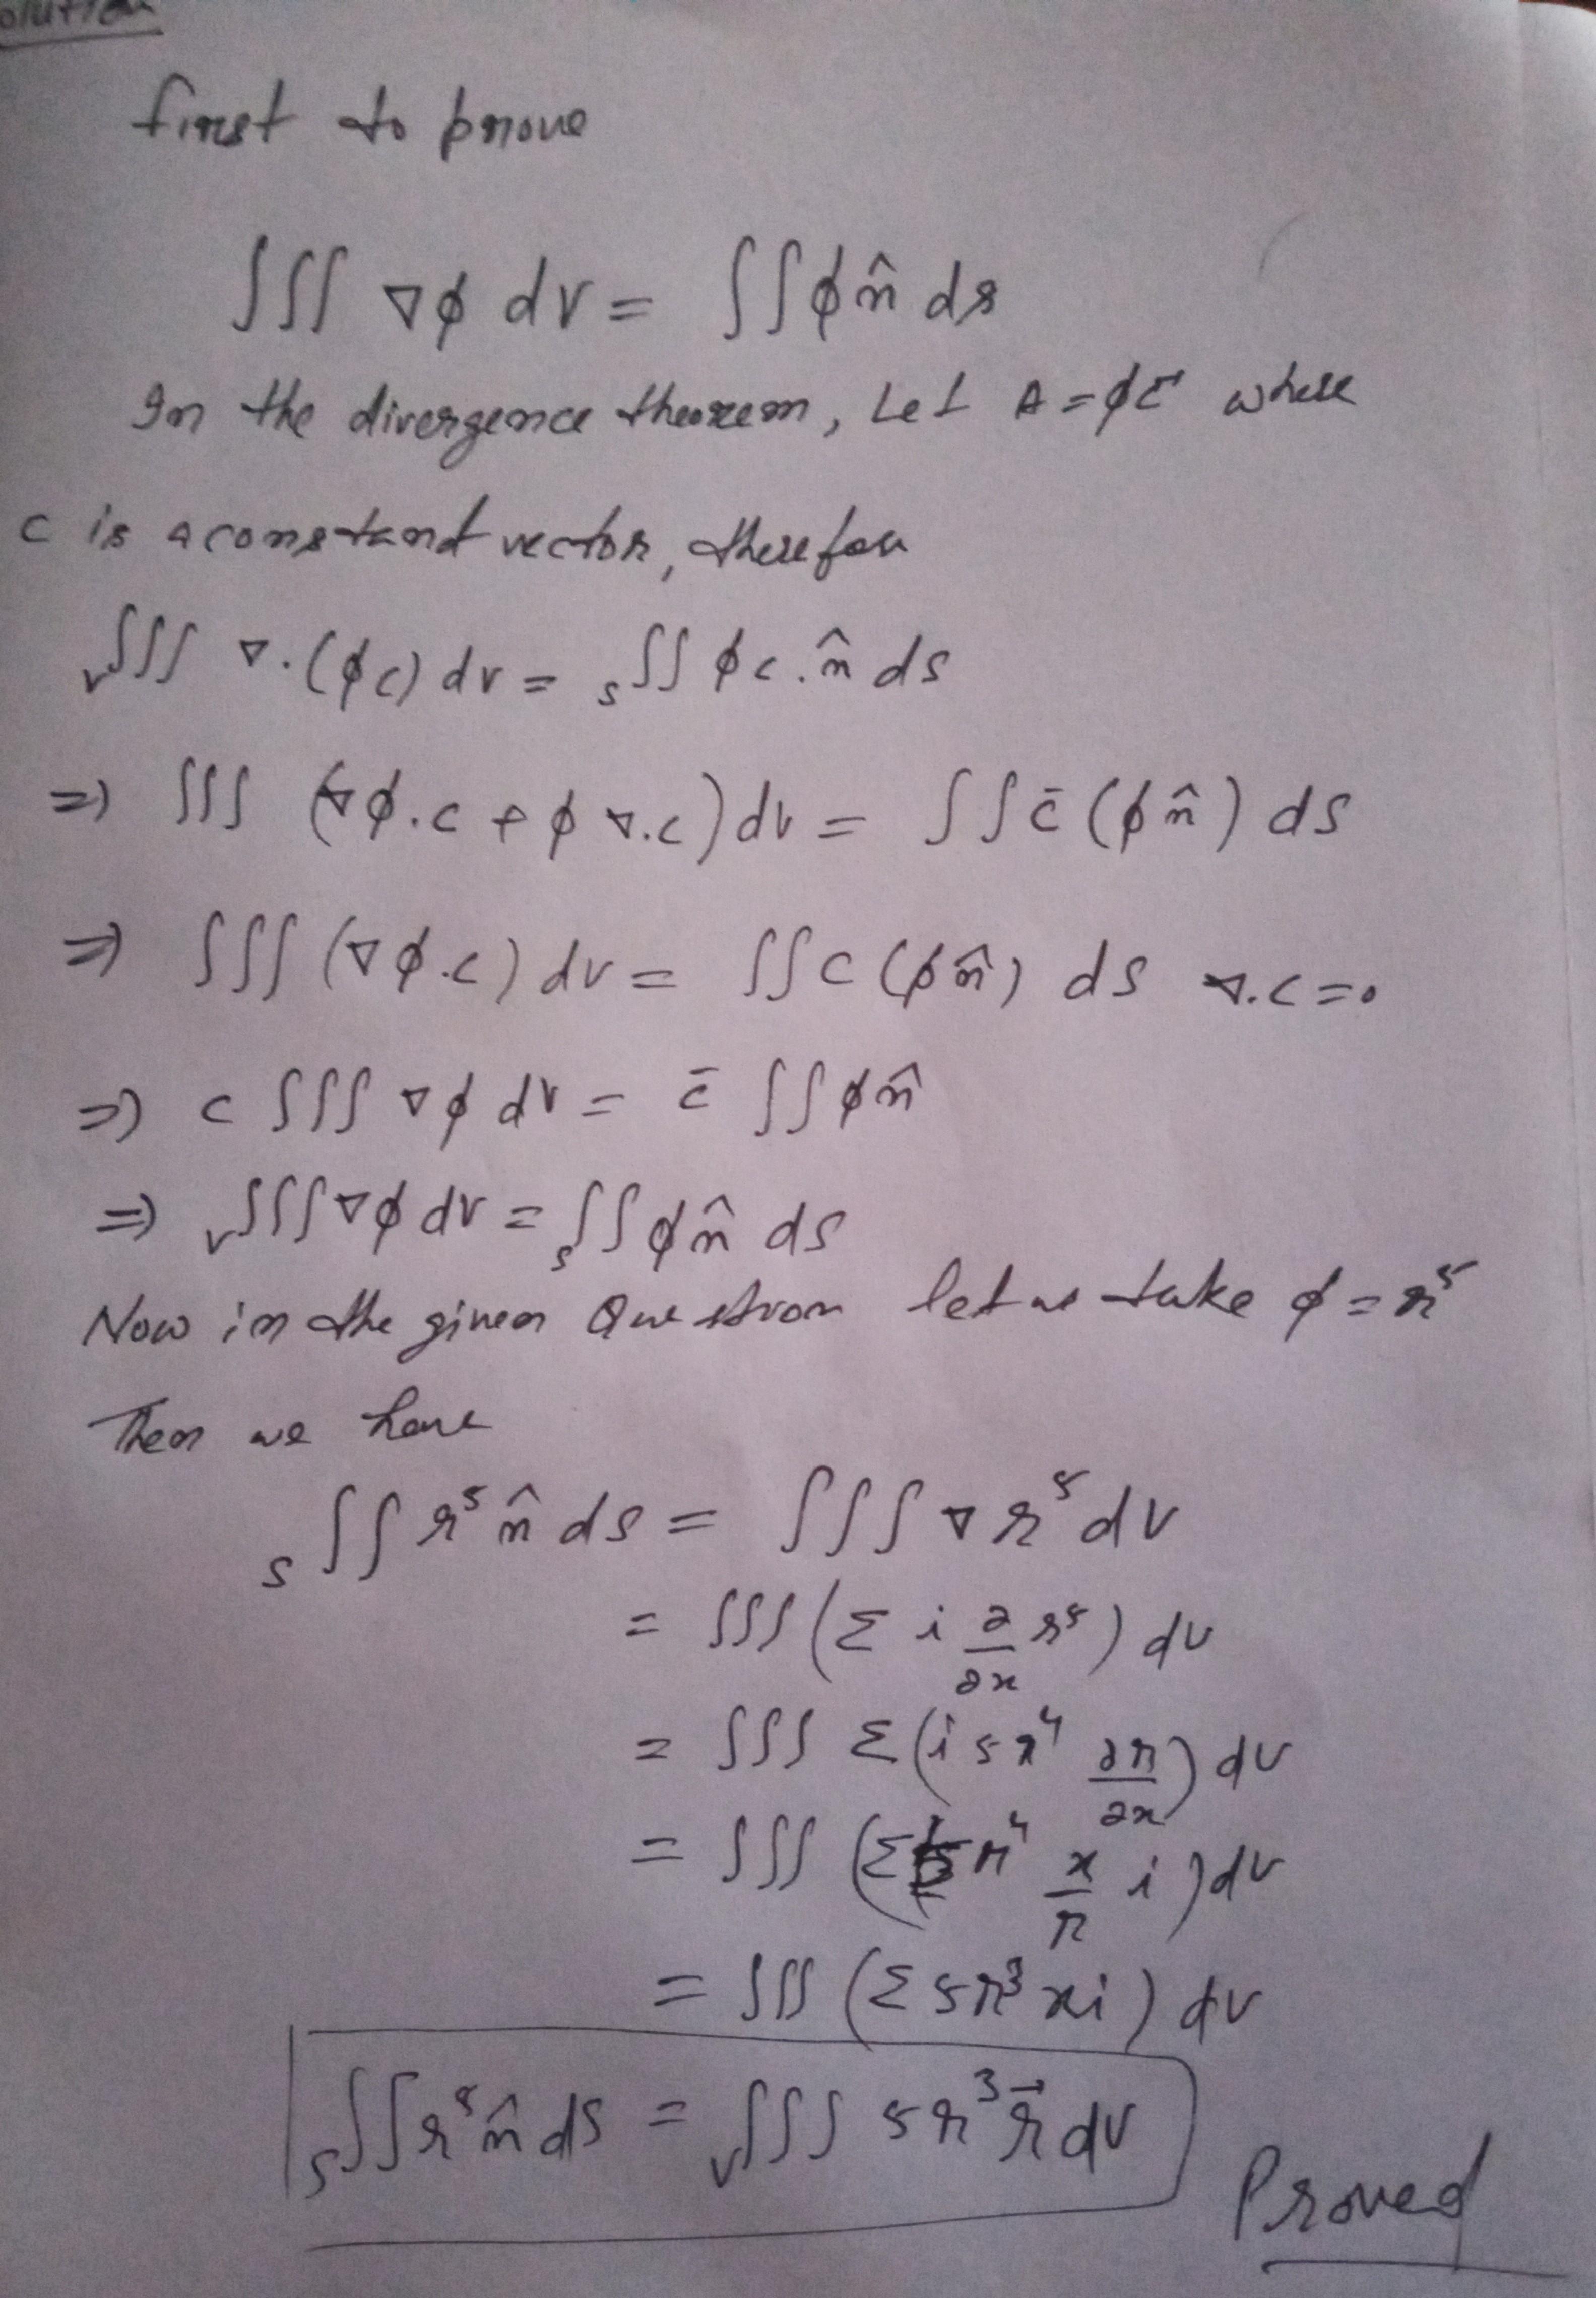 olution
first to prove
∫∫∫ ∇φ dv = ∫∫ φ n̂ ds
In the divergence theorem, Let A = φc⃗ where
c is a constand vector, therefor
v∫∫∫ ∇.(φc) dv = s∫∫ φc.n̂ ds
⇒ ∫∫∫ (∇φ.c + φ ∇.c) dv = ∫∫ c̄ (φ n̂) ds
⇒ ∫∫∫ (∇φ.c) dv = ∫∫ c (φ n̂) ds ∇.c = 0
⇒ c ∫∫∫ ∇φ dv = c̄ ∫∫ φ n̂
⇒ v∫∫∫ ∇φ dv = s∫∫ φ n̂ ds
Now in the given Question let us take φ = r⁵
Then we have
s∫∫ r⁵ n̂ ds = ∫∫∫ ∇ r⁵ dv
= ∫∫∫ (Σ i ∂/∂x r⁵) dv
= ∫∫∫ Σ (i 5r⁴ ∂r/∂x) dv
= ∫∫∫ (Σ 5 r⁴ x/r i) dv
= ∫∫∫ (Σ 5r³ xi) dv
s∫∫ r⁵ n̂ ds = v∫∫∫ 5r³ r⃗ dv
Proved